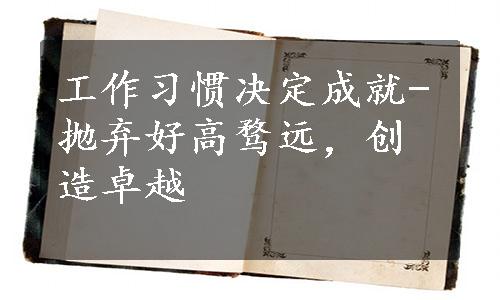 工作习惯决定成就-
抛弃好高骛远，创
造卓越